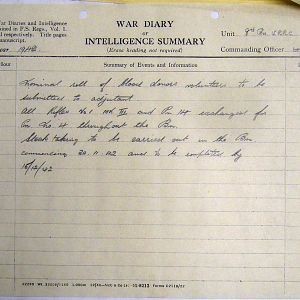 War Diaries and Intelligence
ained in F.S. Regs., Vol. I.
respectively. Title pages
manuscript.
WAR DIARY
or
INTELLIGENCE SUMMARY
(Erase heading not required)
Unit
Commanding Officer
1942
Hour
Summary of Events and Information
Nominal roll of Blood donors volunteers to be
submitted to adjutant
All Rifles No 1 Mk III and Pn 14 exchanged for
No. 4 throughout the Bn.
Stock taking to be carried out in the Bn.
commencing 20.11.42 and to be completed by
15/12/42